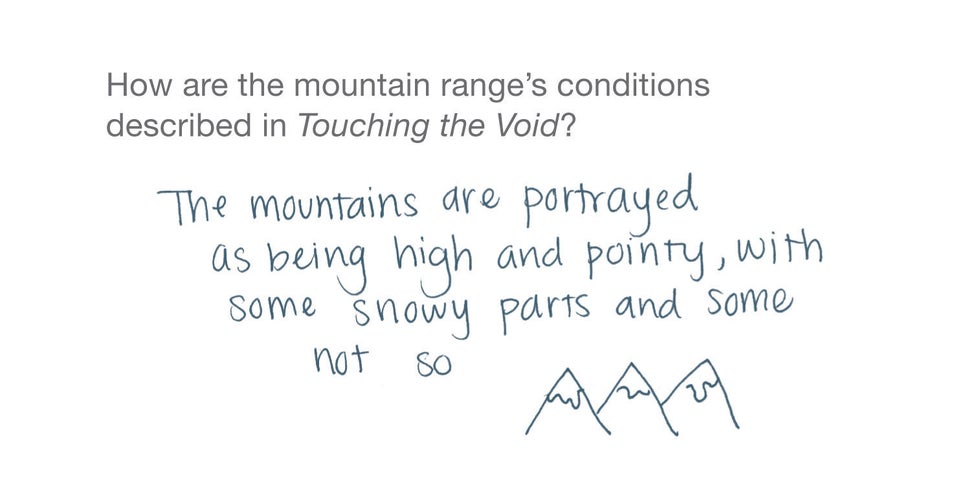 How are the mountain range’s conditions
described in Touching the Void?
The mountains are portrayed
as being high and pointy, with
some snowy parts and some
not so